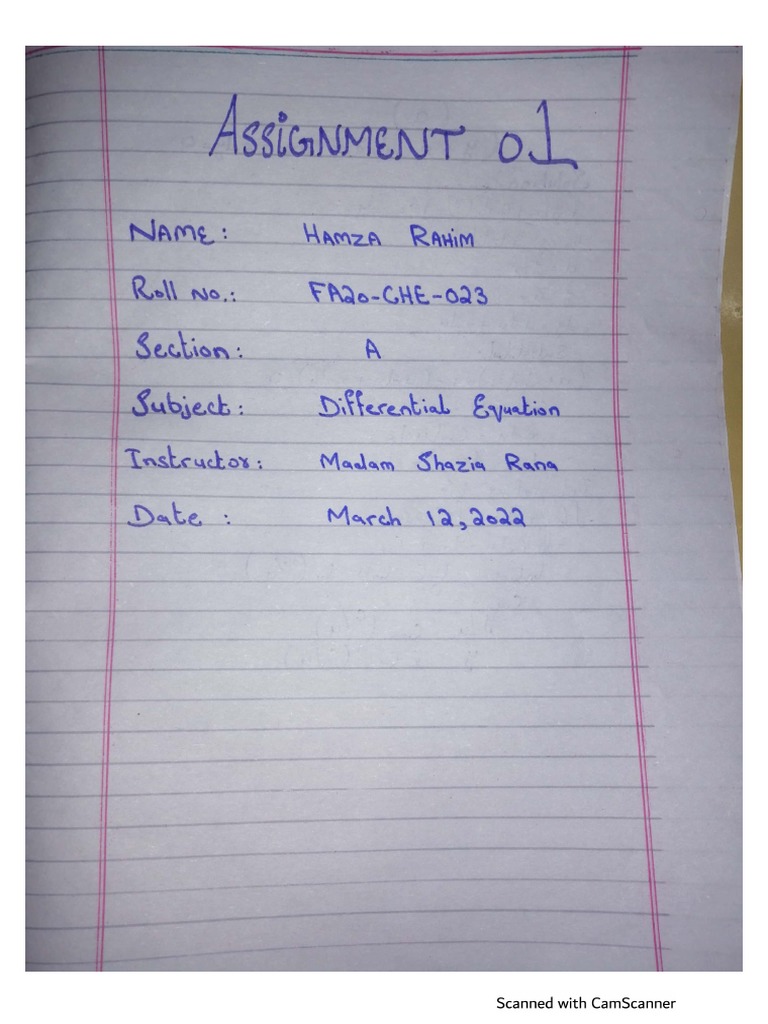 ASSIGNMENT 01
NAME: HAMZA RAHIM
Roll No.: FA20-CHE-023
Section: A
Subject: Differential Equation
Instructor: Madam Shazia Rana
Date: March 12, 2022
Scanned with CamScanner